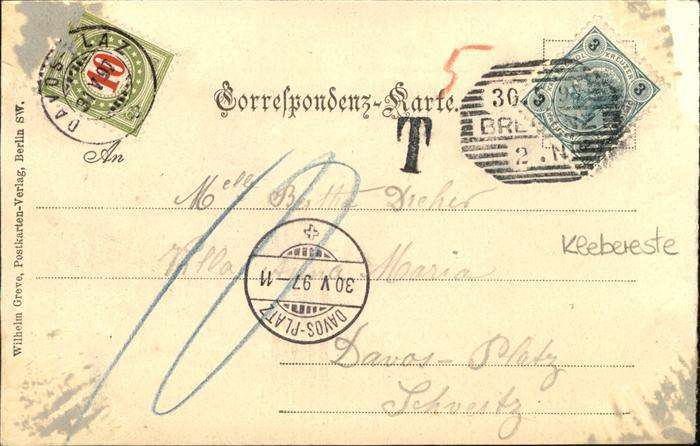 DAVOS-PLATZ
10
5
3 3
KREUZER
30 5 9
BRE
2. N
Correspondenz-Karte.
T
An
Melle Bertha Dreher
Villa Anna Maria
Klebereste
10
30 V 97-11
DAVOS-PLATZ
Davos-Platz
Schweitz
Wilhelm Greve, Postkarten-Verlag, Berlin SW.